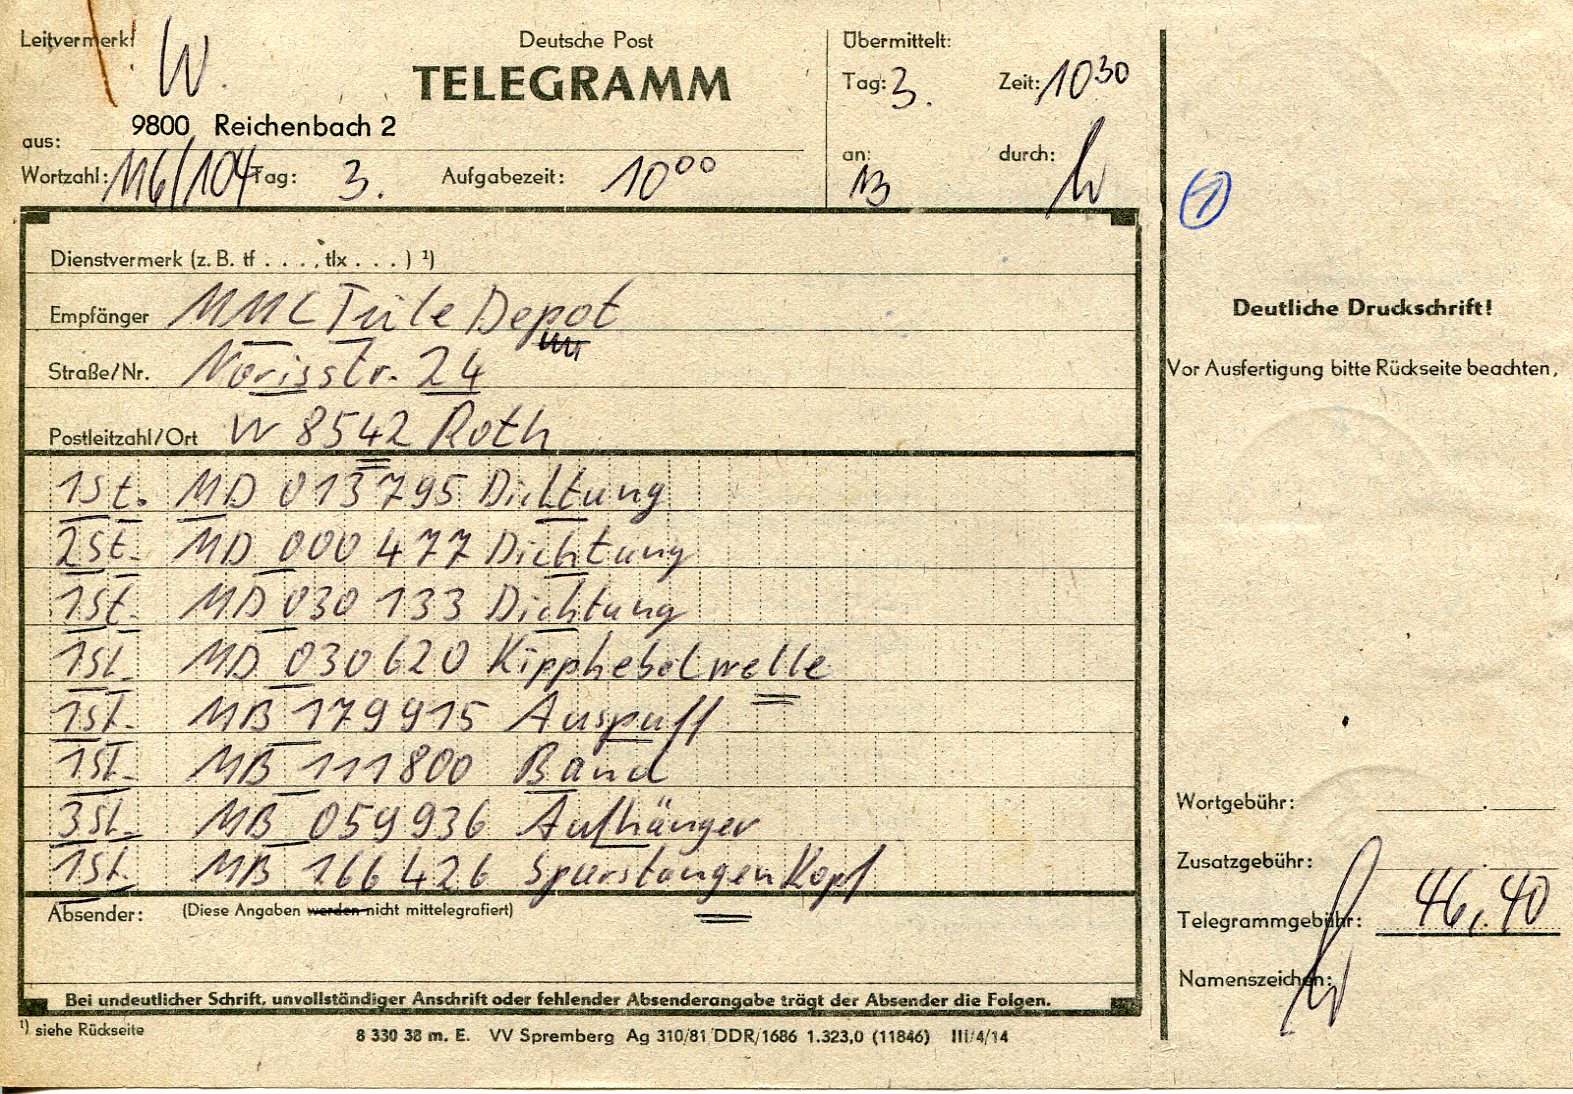 Leitvermerk:
W.
Deutsche Post
TELEGRAMM
9800 Reichenbach 2
aus:
Wortzahl: 116/104 Tag: 3. Aufgabezeit: 10⁰⁰
Übermittelt:
Tag: 3. Zeit: 10³⁰
an: durch:
1
Dienstvermerk (z. B. tf . . . . , tlx . . . ) ¹)
Empfänger MMC Teile Depot
Straße/Nr. Norisstr. 24
Postleitzahl/Ort W 8542 Roth
1St. MD 013795 Dichtung
2St. MD 000 477 Dichtung
1St. MD 030 133 Dichtung
1St. MD 030620 Kipphebelwelle
1St. MB 179915 Auspuff
1St. MB 111800 Band
3St. MB 059936 Aufhänger
1St. MB 166426 Spurstangenkopf
Absender: (Diese Angaben werden nicht mittelegrafiert)
Bei undeutlicher Schrift, unvollständiger Anschrift oder fehlender Absenderangabe trägt der Absender die Folgen.
¹) siehe Rückseite
8 330 38 m. E. VV Spremberg Ag 310/81 DDR/1686 1.323,0 (11846) III/4/14
Deutliche Druckschrift!
Vor Ausfertigung bitte Rückseite beachten,
Wortgebühr:
Zusatzgebühr:
Telegrammgebühr: 46,40
Namenszeichen: